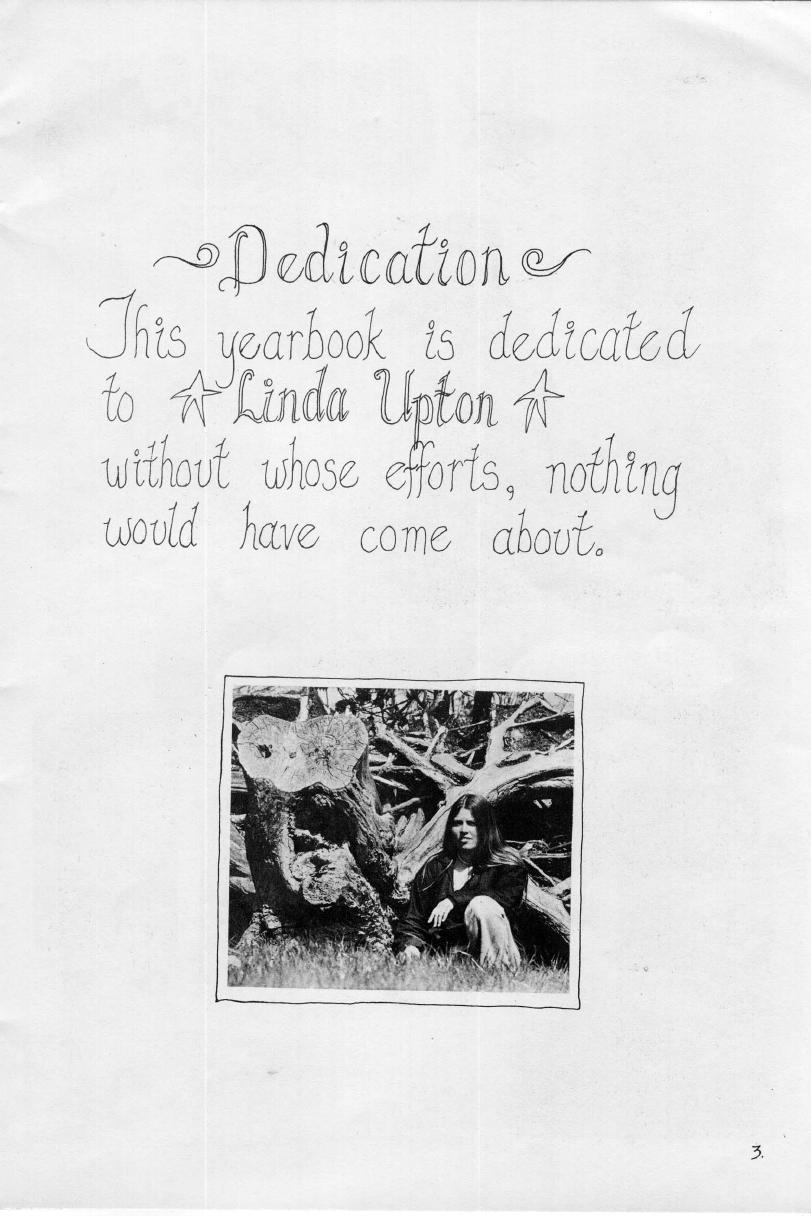 Dedication
This yearbook is dedicated
to ☆ Linda Upton ☆
without whose efforts, nothing
would have come about.
3.